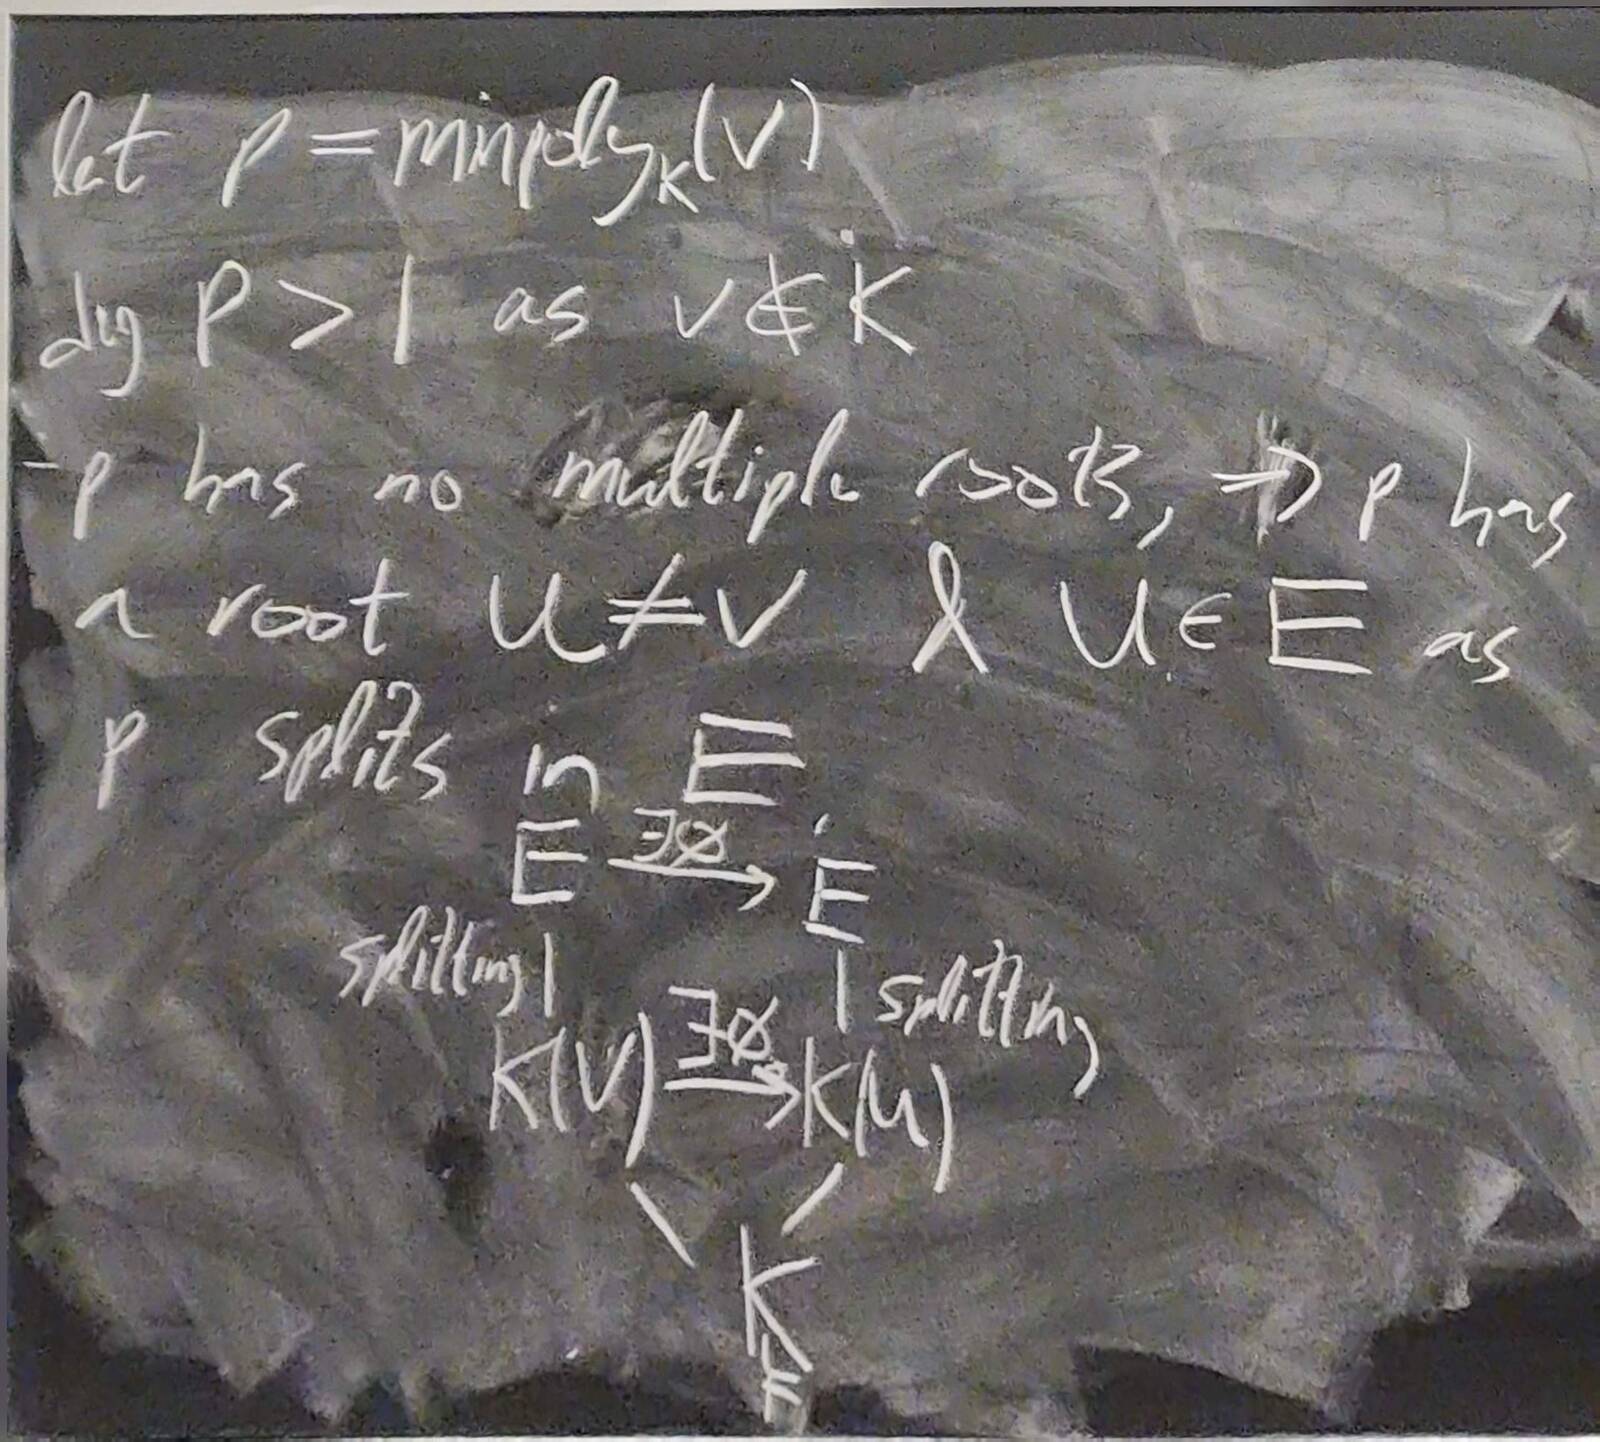 let p = minpoly_K(v)
deg p > 1 as v ∉ K
p has no multiple roots, ⇒ p has
a root u ≠ v & u ∈ E as
p splits in E
E ∃∅→ E
splitting | | splitting
K(v) ∃∅→ K(u)
\ /
K
|
F